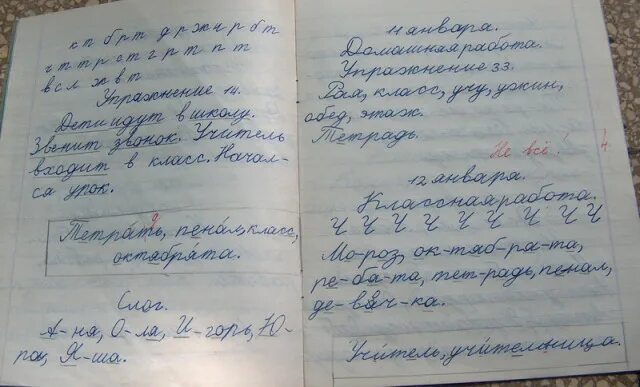 к п б р т д р ж н р б т
ч т т р с т г р т п т
в с л ж в т
Упражнение 14.
Дети идут в школу.
Звенит звонок. Учитель
входит в класс. Начал-
ся урок.
д
Тетрать, пенал, класс,
октябрята.
Слог.
А-ня, О-ля, И-горь, Ю-
ра, Я-ша.
11 января.
Домашная работа.
Упражнение 33.
Рая, класс, учу, ужин,
обед, этаж.
Тетрадь.
Не всё! 4
12 января.
Классная работа.
Ч Ч Ч Ч Ч Ч Ч Ч Ч
Мо-роз, ок-тяб-ря-та,
ре-бя-та, тет-радь, пенал,
де-вач-ка.
Учитель, учителница.